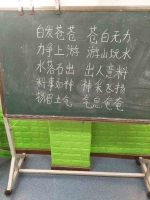 白发苍苍 苍白无力
力争上游 游山玩水
水落石出 出人意料
料事如神 神采飞扬
扬眉土气 气